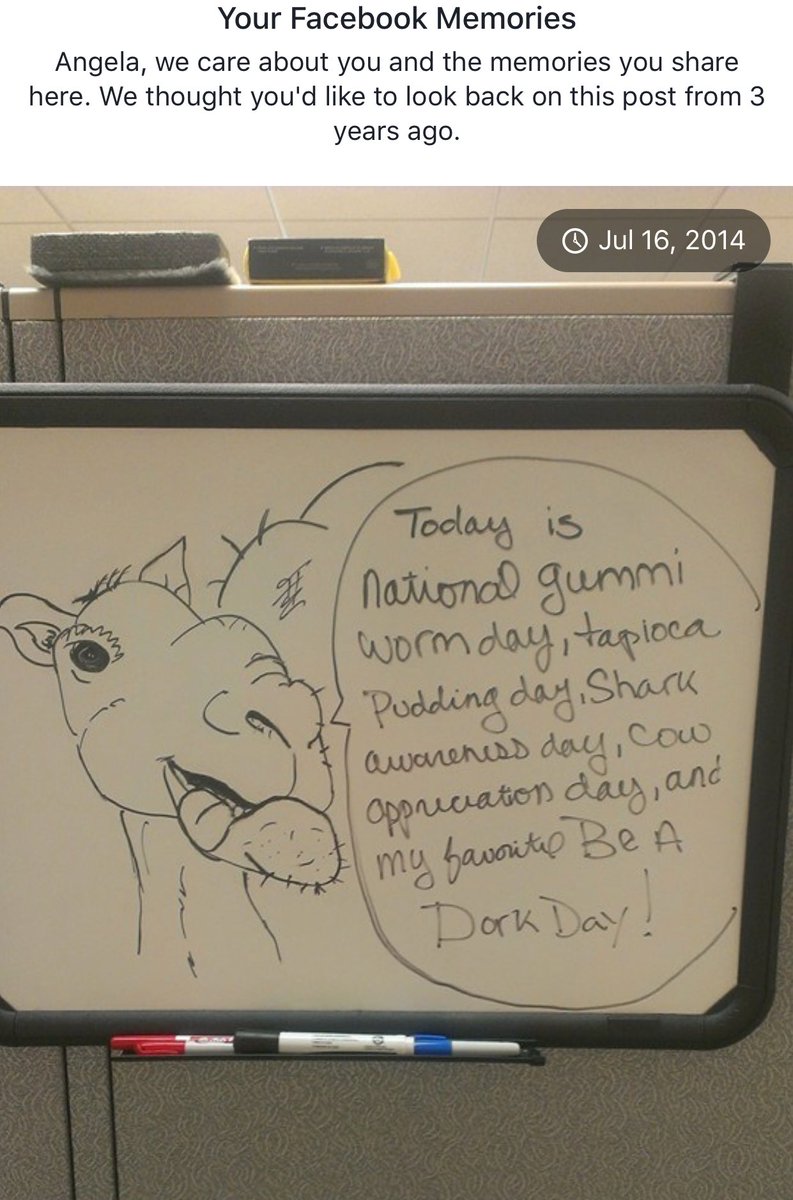 Your Facebook Memories
Angela, we care about you and the memories you share
here. We thought you'd like to look back on this post from 3
years ago.
Jul 16, 2014
Today is
national gummi
worm day, tapioca
Pudding day, Shark
awareness day, Cow
appreciation day, and
my favorite Be A
Dork Day!